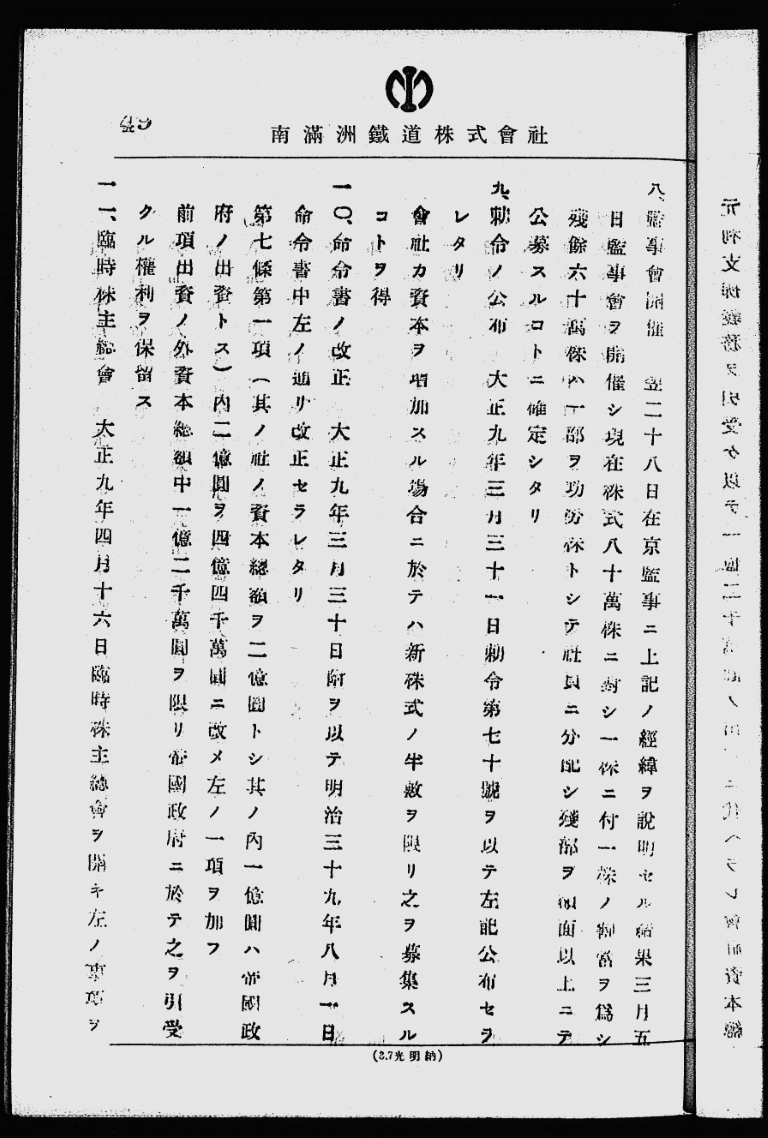 49
南滿洲鐵道株式會社
元利支拂義務ヲ引受ケ以テ一億二千萬圓ノ出 ニ代ヘテレ會社資本總
八、監事會開催 翌二十八日在京監事ニ上記ノ經緯ヲ說明セル結果三月五
日監事會ヲ開催シ現在株式八十萬株ニ對シ一株ニ付一株ノ割當ヲ爲シ
殘餘六十萬株ハ一部ヲ功勞株トシテ社員ニ分配シ殘部ヲ額面以上ニテ
公募スルコトニ確定シタリ
九、勅令ノ公布 大正九年三月三十一日勅令第七十號ヲ以テ左記公布セラ
レタリ
會社カ資本ヲ增加スル場合ニ於テハ新株式ノ半數ヲ限リ之ヲ募集スル
コトヲ得
一〇、命令書ノ改正 大正九年三月三十日附ヲ以テ明治三十九年八月一日
命令書中左ノ通リ改正セラレタリ
第七條第一項（其ノ社ノ資本總額ヲ二億圓トシ其ノ內一億圓ハ帝國政
府ノ出資トス）內二億圓ヲ四億四千萬圓ニ改メ左ノ一項ヲ加フ
前項出資ノ外資本總額中一億二千萬圓ヲ限リ帝國政府ニ於テ之ヲ引受
クル權利ヲ保留ス
一一、臨時株主總會 大正九年四月十六日臨時株主總會ヲ開キ左ノ事項ヲ
(3.7光明納)